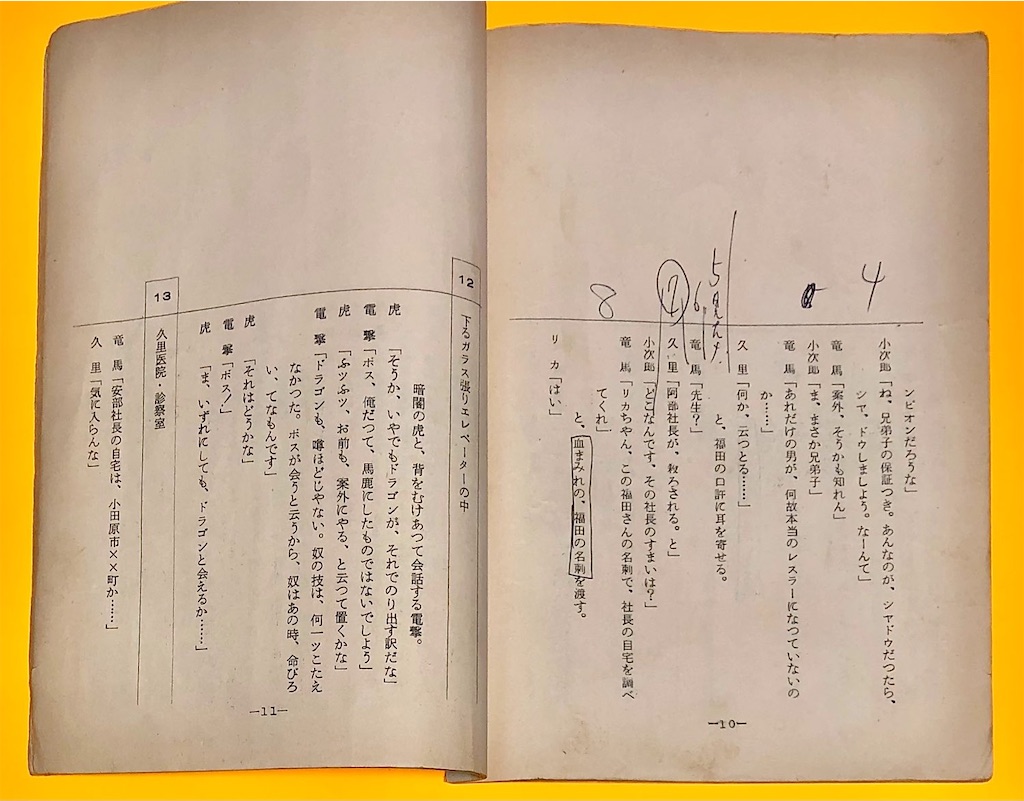 ンピオンだろうな」
小次郎「ね、兄弟子の保証つき。あんなのが、シヤドウだつたら、
シヤ、ドウしましよう。なーんて」
竜馬「案外、そうかも知れん」
小次郎「ま、まさか兄弟子」
竜馬「あれだけの男が、何故本当のレスラーになつていないの
か……」
久里「何か、云つとる……」
と、福田の口許に耳を寄せる。
竜馬「先生？」
久里「阿部社長が、殺ろされる。と」
小次郎「どこなんです、その社長のすまいは？」
竜馬「リカちやん、この福田さんの名刺で、社長の自宅を調べ
てくれ」
と、血まみれの、福田の名刺を渡す。
リカ「はい」
4
6
7
8
—10—
12
下るガラス張りエレベーターの中
暗闇の虎と、背をむけあつて会話する電撃。
虎「そうか、いやでもドラゴンが、それでのり出す訳だな」
電撃「ボス、俺だつて、馬鹿にしたものではないでしよう」
虎「ふツふツ、お前も、案外にやる、と云つて置くかな」
電撃「ドラゴンも、噂ほどじやない。奴の技は、何一ツこたえ
なかつた。ボスが会うと云うから、奴はあの時、命びろ
い、てなもんです」
虎「それはどうかな」
電撃「ボス！」
虎「ま、いずれにしても、ドラゴンと会えるか……」
13
久里医院・診察室
竜馬「安部社長の自宅は、小田原市××町か……」
久里「気に入らんな」
—11—